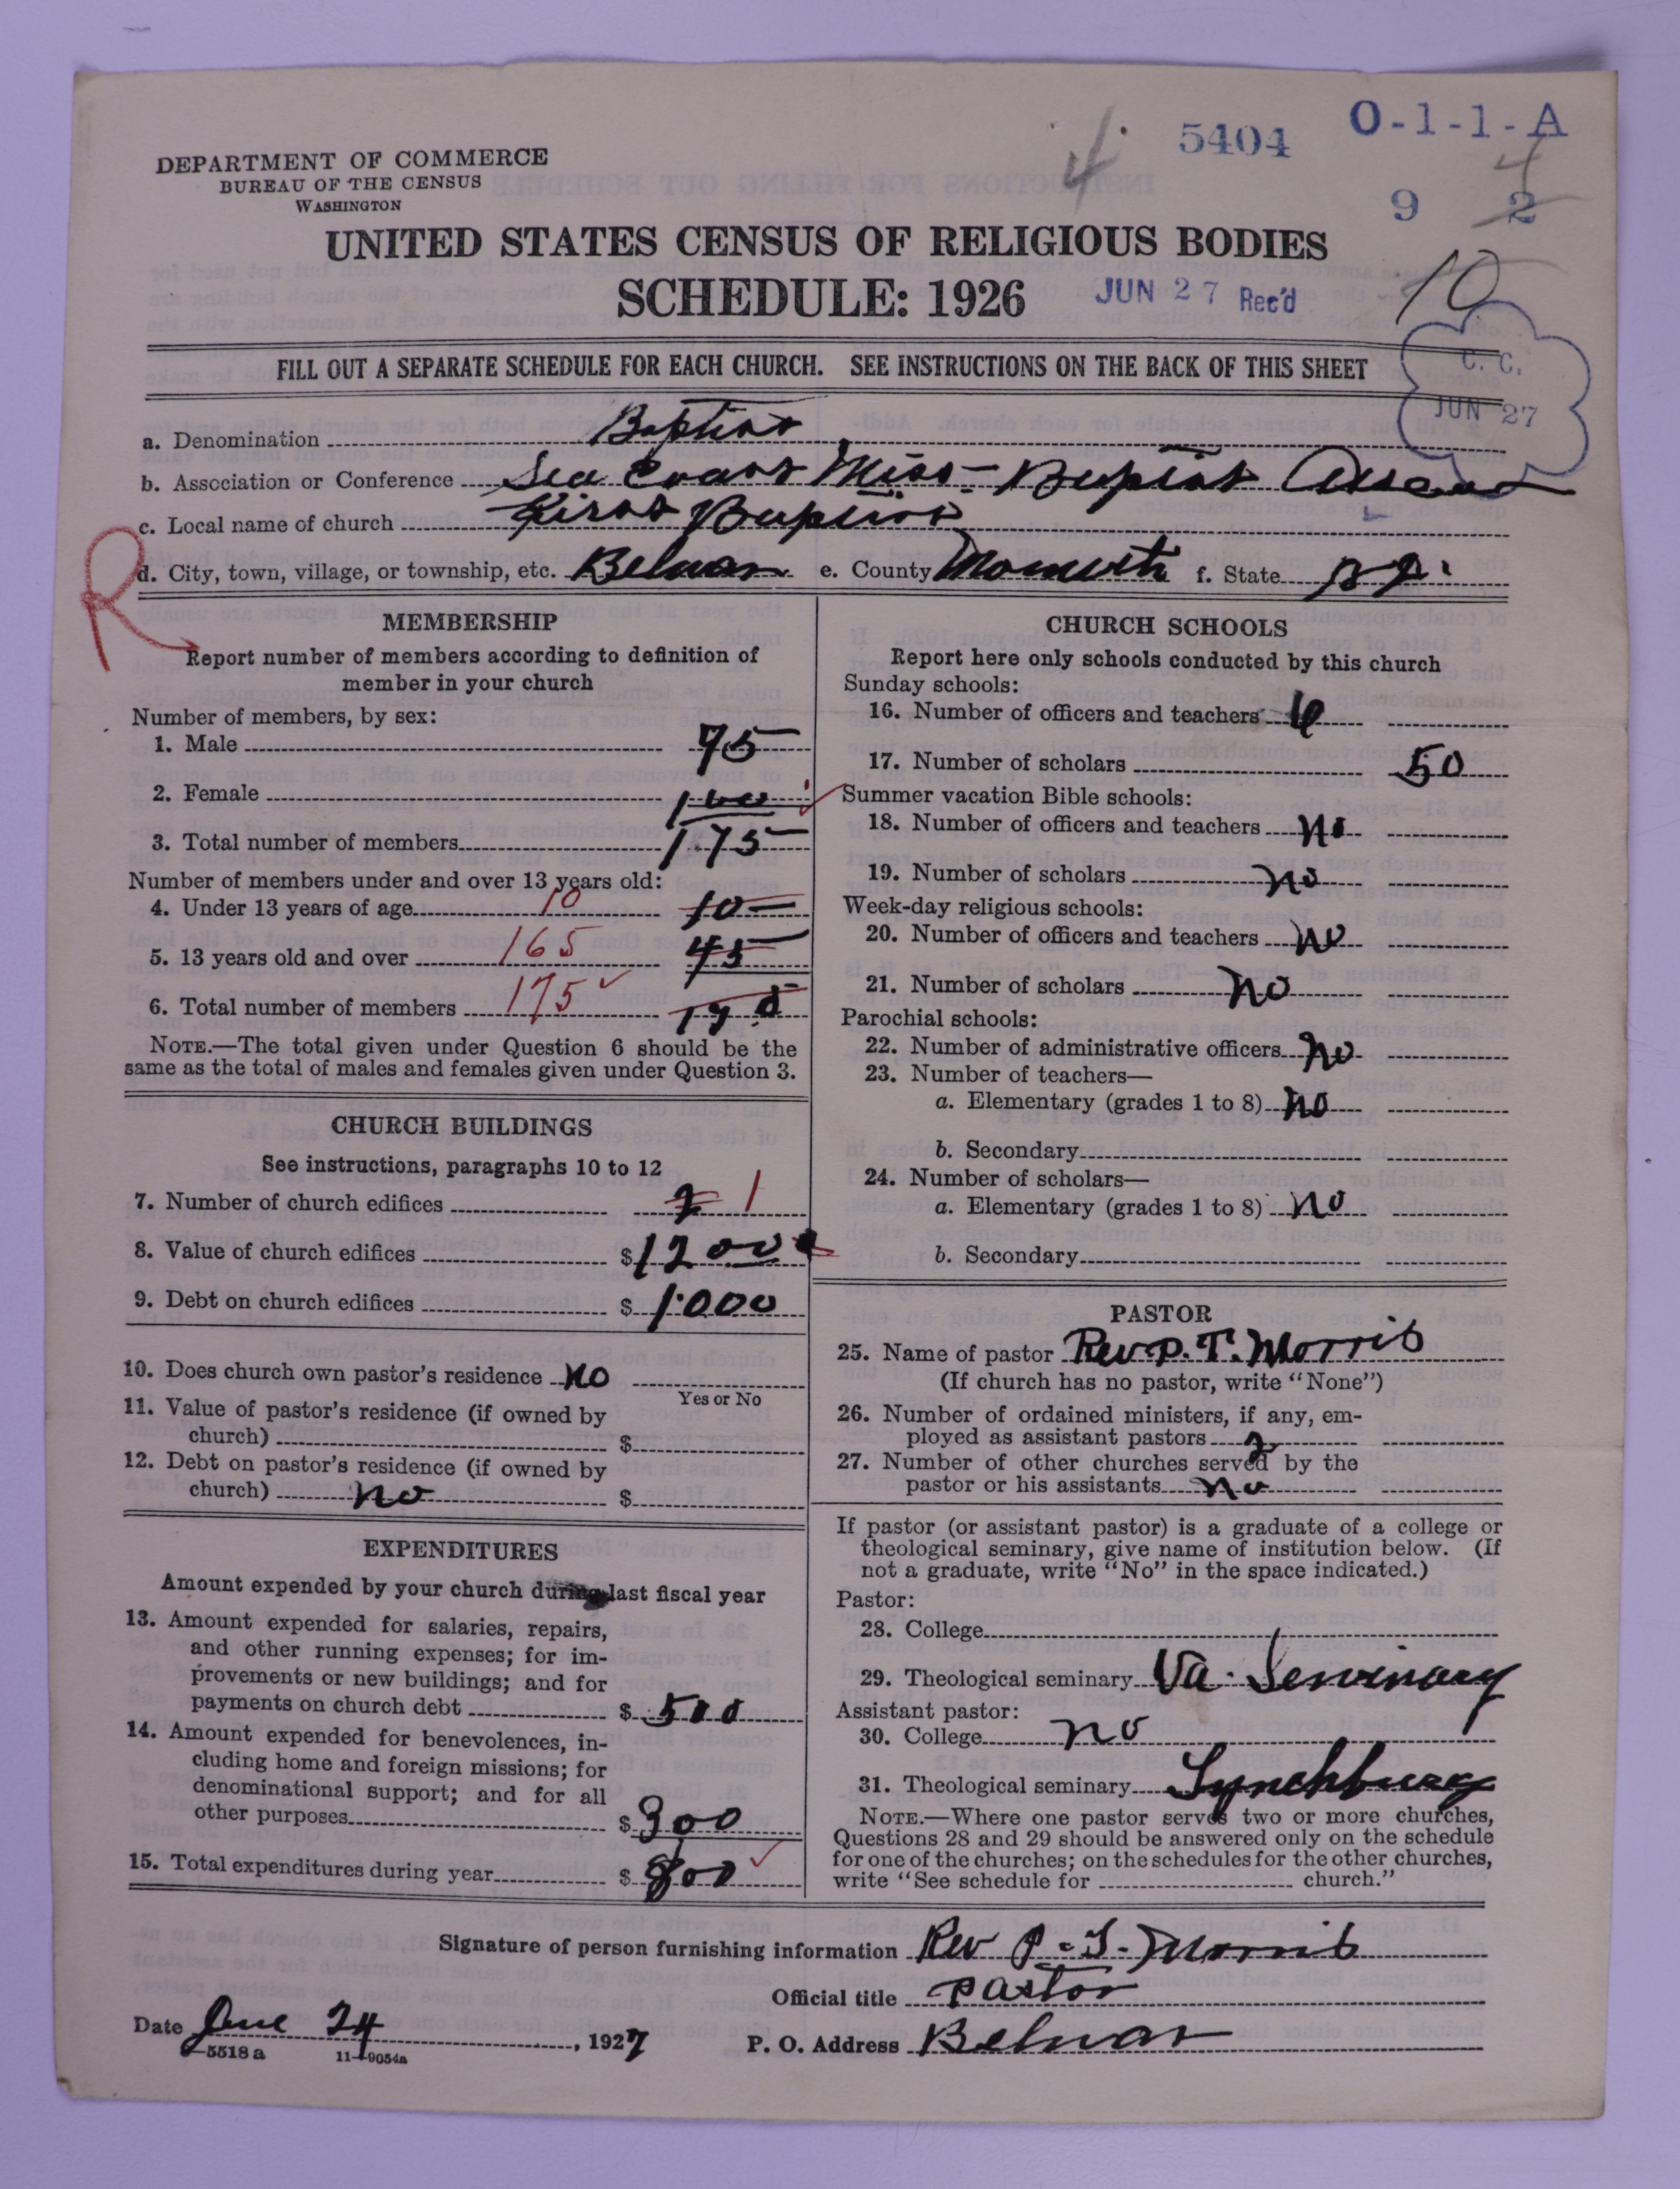 4
5404
O-1-1-A
4
9 2
DEPARTMENT OF COMMERCE
BUREAU OF THE CENSUS
WASHINGTON
UNITED STATES CENSUS OF RELIGIOUS BODIES
SCHEDULE: 1926
JUN 27 Rec'd
10
C. C.
JUN 27
FILL OUT A SEPARATE SCHEDULE FOR EACH CHURCH. SEE INSTRUCTIONS ON THE BACK OF THIS SHEET
a. Denomination Baptist
b. Association or Conference Sea Coast Miss- Baptist
c. Local name of church First Baptist
R
d. City, town, village, or township, etc. Belmar e. County Monmouth f. State N J.
MEMBERSHIP
Report number of members according to definition of
member in your church
Number of members, by sex:
1. Male 75
2. Female 100
3. Total number of members 175
Number of members under and over 13 years old:
4. Under 13 years of age 10 10
5. 13 years old and over 165 45
6. Total number of members 175 175
NOTE.—The total given under Question 6 should be the
same as the total of males and females given under Question 3.
CHURCH BUILDINGS
See instructions, paragraphs 10 to 12
7. Number of church edifices 2 1
8. Value of church edifices $ 12000
9. Debt on church edifices $ 1000
10. Does church own pastor's residence No
Yes or No
11. Value of pastor's residence (if owned by
church) $
12. Debt on pastor's residence (if owned by
church) no $
EXPENDITURES
Amount expended by your church during last fiscal year
13. Amount expended for salaries, repairs,
and other running expenses; for im-
provements or new buildings; and for
payments on church debt $ 500
14. Amount expended for benevolences, in-
cluding home and foreign missions; for
denominational support; and for all
other purposes $ 300
15. Total expenditures during year $ 800
CHURCH SCHOOLS
Report here only schools conducted by this church
Sunday schools:
16. Number of officers and teachers 6
17. Number of scholars 50
Summer vacation Bible schools:
18. Number of officers and teachers No
19. Number of scholars no
Week-day religious schools:
20. Number of officers and teachers No
21. Number of scholars No
Parochial schools:
22. Number of administrative officers No
23. Number of teachers—
a. Elementary (grades 1 to 8) No
b. Secondary
24. Number of scholars—
a. Elementary (grades 1 to 8) No
b. Secondary
PASTOR
25. Name of pastor Rev P. T. Morris
(If church has no pastor, write "None")
26. Number of ordained ministers, if any, em-
ployed as assistant pastors 2
27. Number of other churches served by the
pastor or his assistants no
If pastor (or assistant pastor) is a graduate of a college or
theological seminary, give name of institution below. (If
not a graduate, write "No" in the space indicated.)
Pastor:
28. College
29. Theological seminary Va. Seminary
Assistant pastor:
30. College no
31. Theological seminary Lynchburg
NOTE.—Where one pastor serves two or more churches,
Questions 28 and 29 should be answered only on the schedule
for one of the churches; on the schedules for the other churches,
write "See schedule for church."
Signature of person furnishing information Rev P. T. Morris
Official title Pastor
Date June 24, 1927
P. O. Address Belmar
5518 a 11—9054a